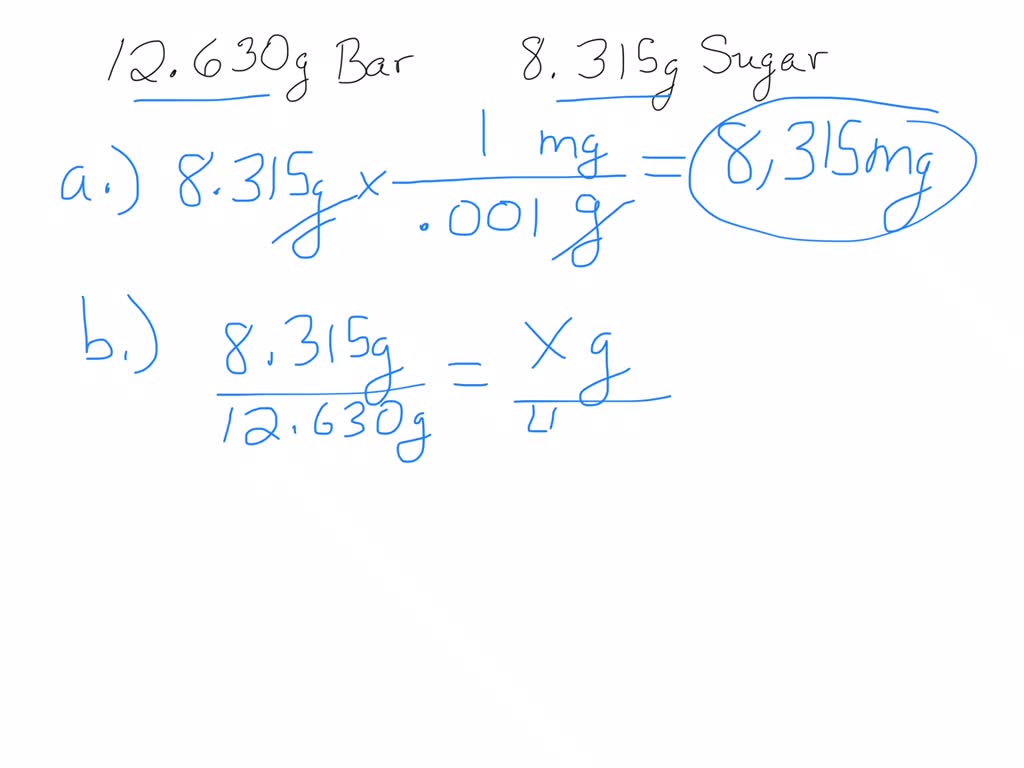 12.630g Bar 8.315g Sugar
a.) 8.315g x 1 mg / .001 g = 8,315mg
b.) 8.315g / 12.630g = x g / 4